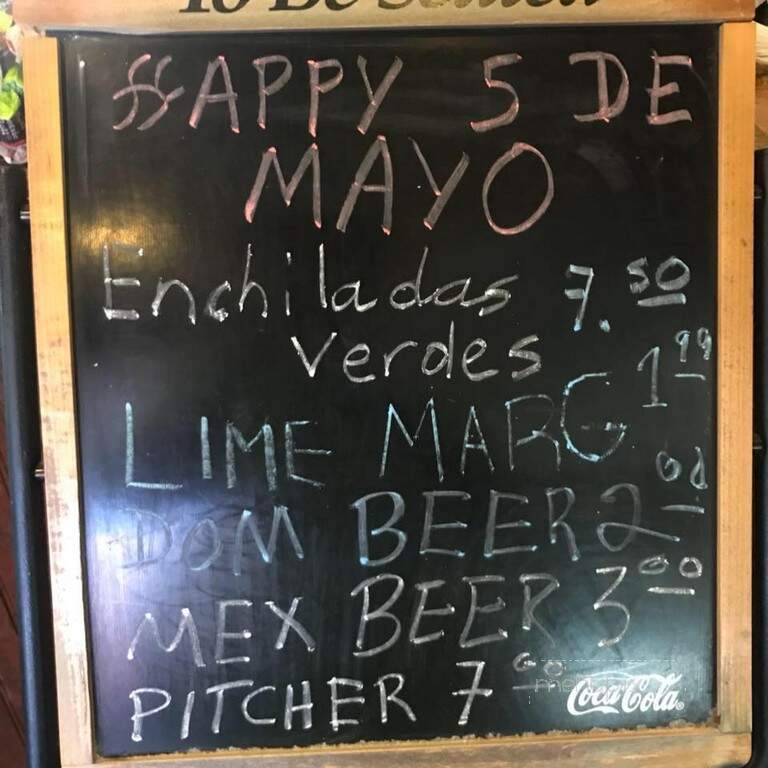 To Be Seated
HAPPY 5 DE
MAYO
Enchiladas 7.50
verdes
LIME MARG 1 99
DOM BEER 2 00
MEX BEER 3 00
PITCHER 7 00
Coca-Cola